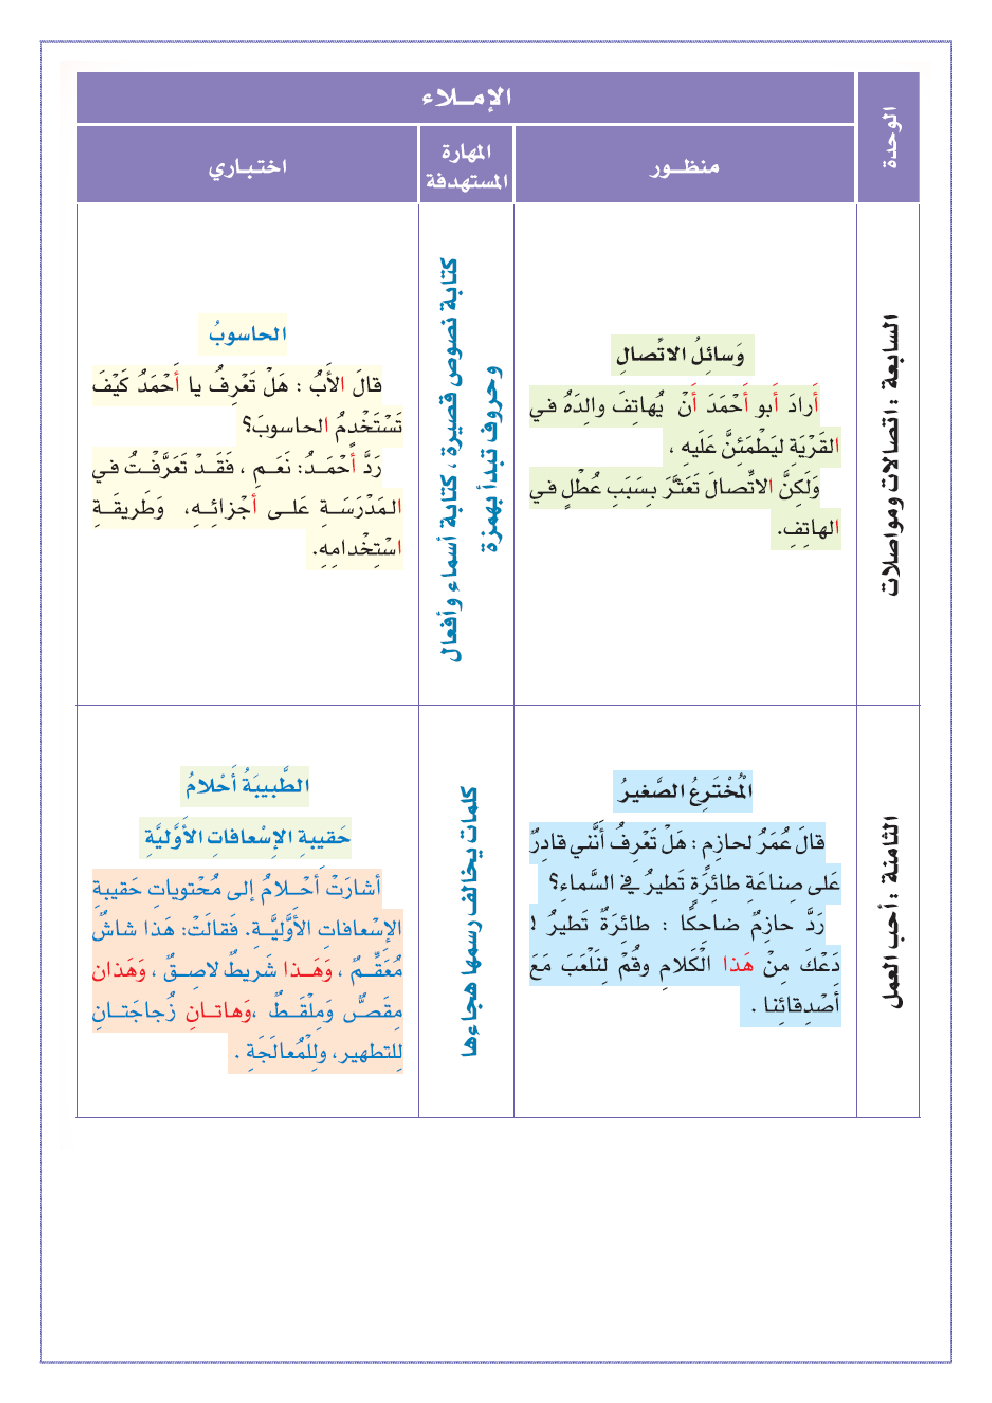 الوحدة
الإمــلاء
منظــور
المهارة
المستهدفة
اختـبـاري
السابعة : اتصالات ومواصلات
وَسائِلُ الاتِّصالِ
أَرادَ أَبو أَحْمَدَ أَنْ يُهاتِفَ والِدَهُ في
القَرْيَةِ ليَطْمَئِنَّ عَلَيهِ ،
وَلَكِنَّ الاتِّصالَ تَعَثَّرَ بِسَبَبِ عُطْلٍ في
الهاتِفِ.
كتابة نصوص قصيرة ، كتابة أسماء وأفعال
وحروف تبدأ بهمزة
الحاسوبُ
قالَ الأَبُ : هَلْ تَعْرِفُ يا أَحْمَدُ كَيْفَ
تَسْتَخْدِمُ الحاسوبَ؟
رَدَّ أَحْمَـدُ: نَعَـمِ ، فَقَـدْ تَعَرَّفْـتُ فـي
المَدْرَسَـةِ عَلـى أَجْزائِـهِ، وَطَريقَـةِ
اسْتِخْدامِهِ.
الثامنة : أحب العمل
الْمُخْتَرِعُ الصَّغيرُ
قالَ عُمَرُ لحازِمٍ : هَلْ تَعْرِفُ أَنَّني قادِرٌ
عَلى صِناعَةِ طائِرَةٍ تَطيرُ في السَّماءِ؟
رَدَّ حازِمٌ ضاحِكًا : طائِرَةٌ تَطيرُ لا
دَعْكَ مِنْ هَذا الْكَلامِ وقُمْ لِنَلْعَبَ مَعَ
أَصْدِقائِنا .
كلمات يخالف رسمها هجاءها
الطَّبيبَةُ أَحْلامُ
حَقيبةِ الإسْعافاتِ الأَوَّليَّةِ
أشارَتْ أَحْـلامُ إلى مُحْتوياتِ حَقيبةِ
الإسْعافاتِ الأَوَّليَّـةِ. فَقالَتْ: هَذا شاشٌ
مُعَقَّـمٌ ، وَهَــذا شَريطٌ لاصِـقٌ ، وَهَذان
مِقَصٌّ وَمِلْقَـطٌ ،وَهاتـانِ زُجاجَتـانِ
لِلتطهير، ولِلْمُعالَجَةِ .